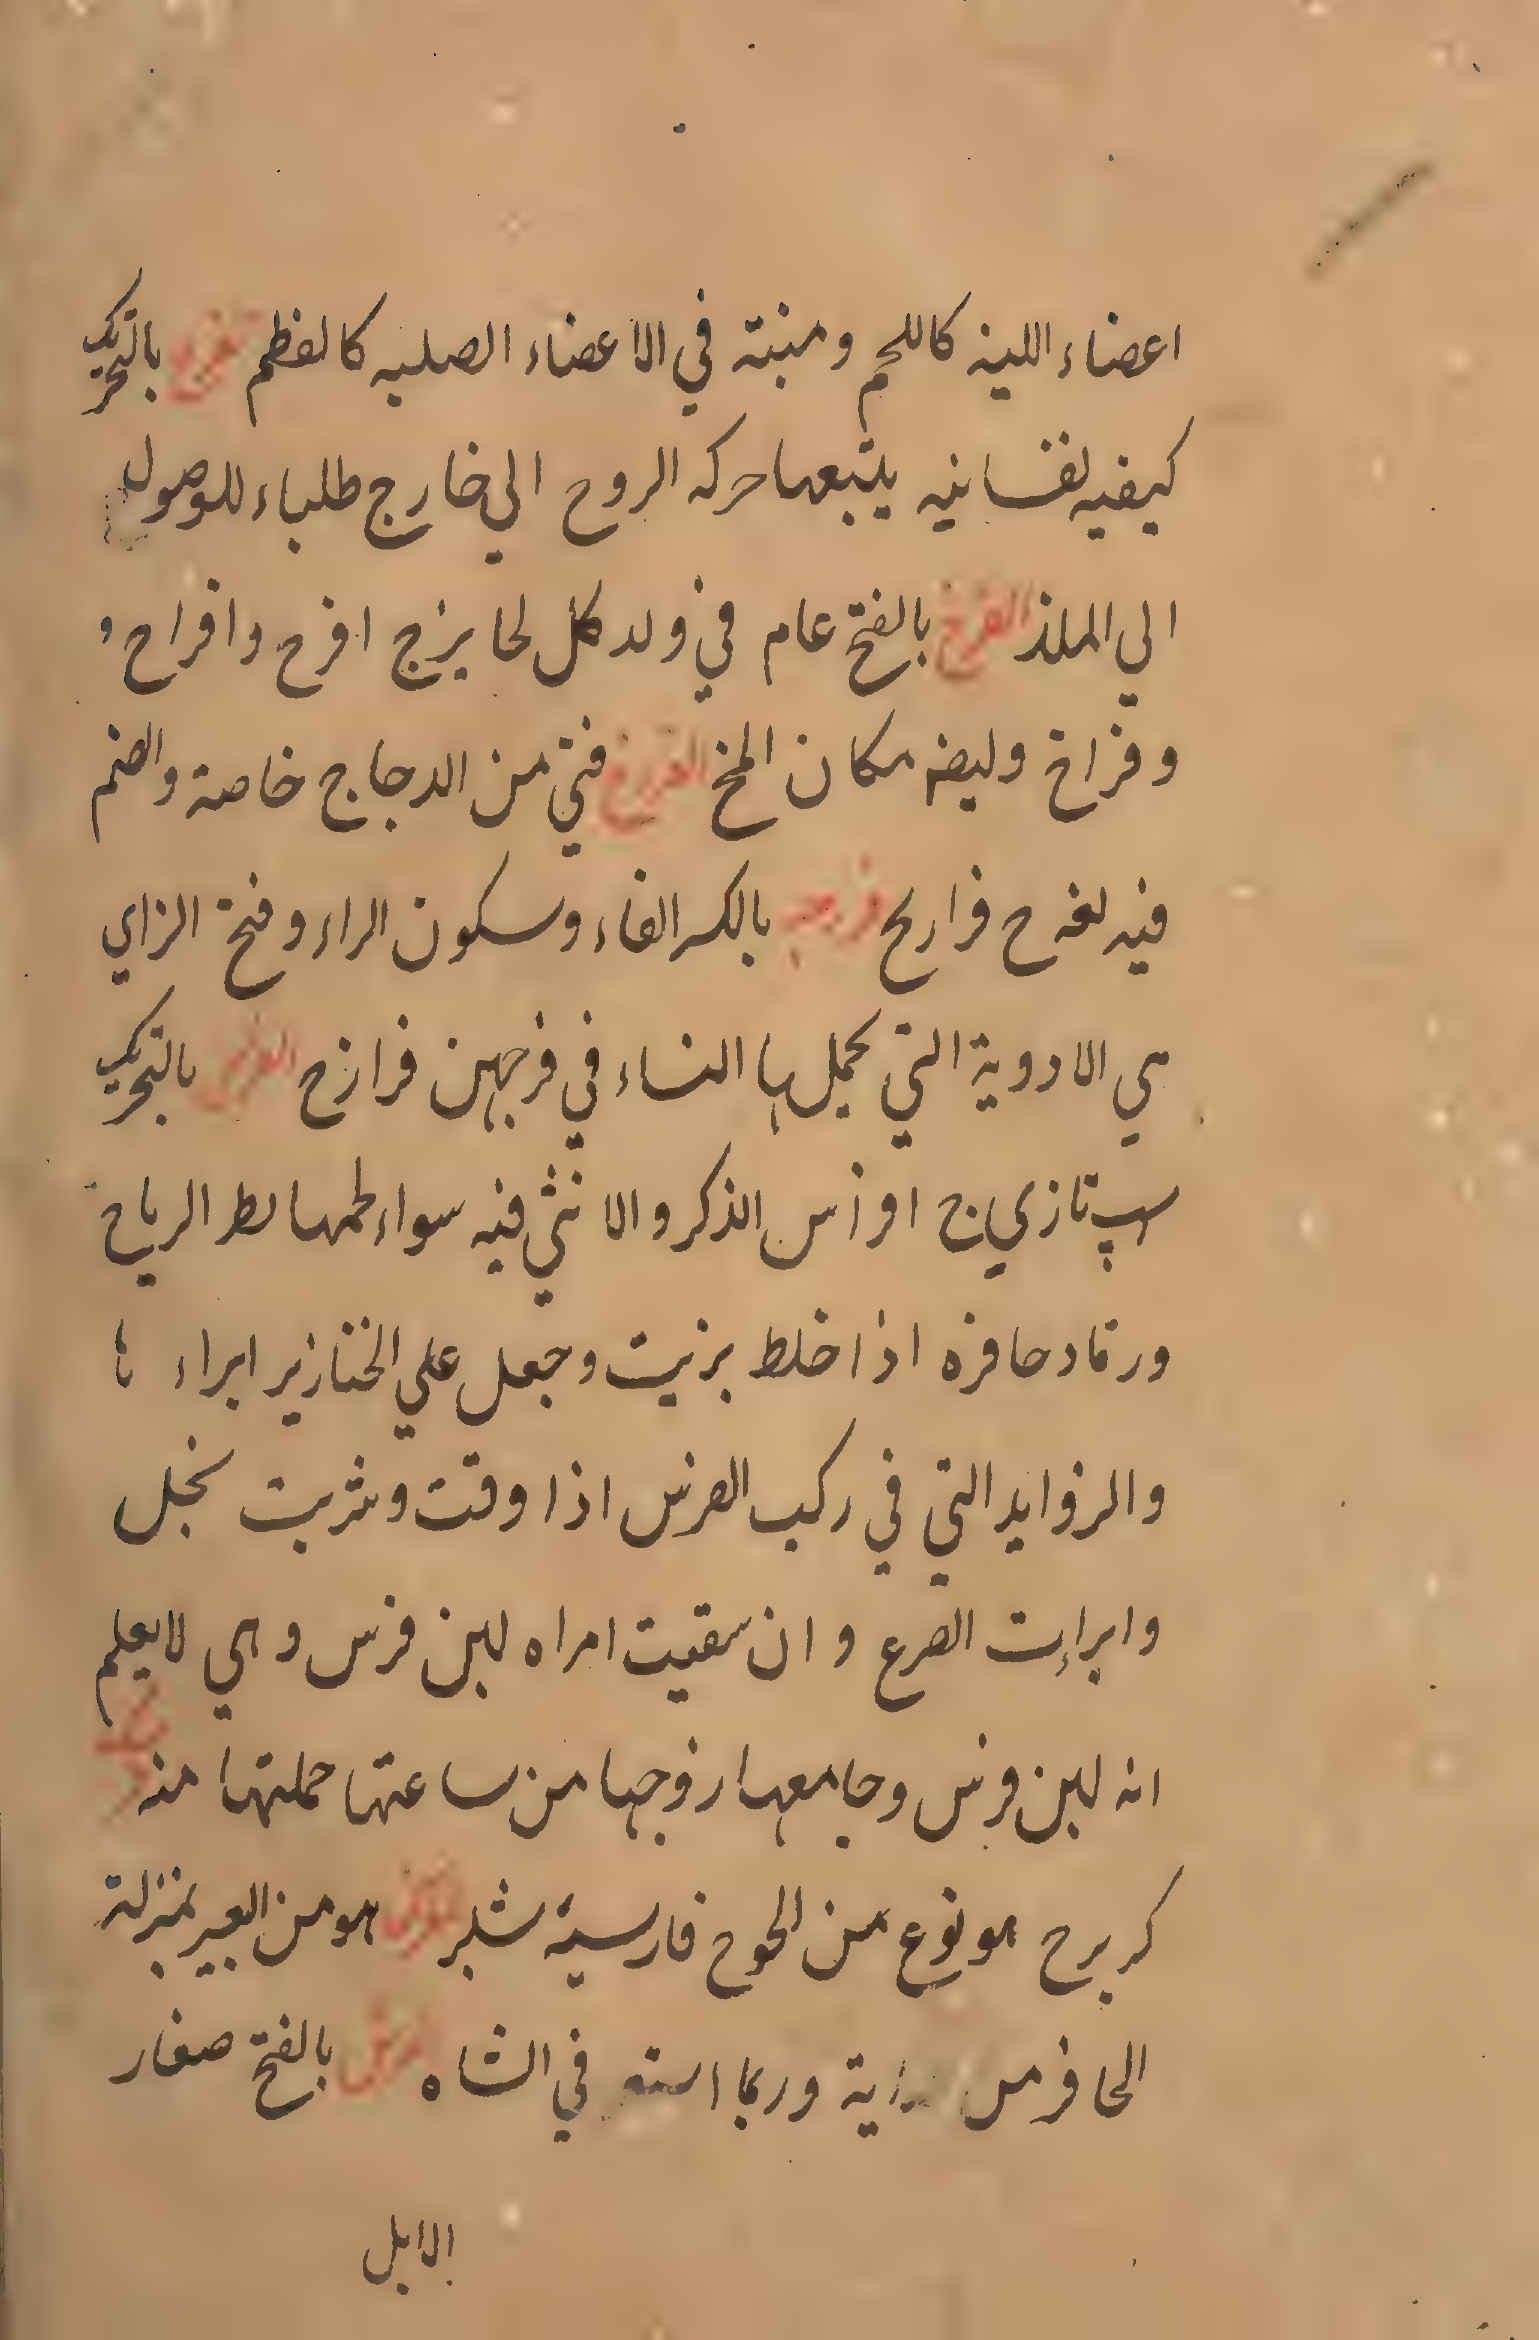 اعضاء اللينه كاللحم ومنبتة في الاعضاء الصلبه كالعظم فرح بالتحريك
كيفيه نفسانيه يتبعها حركه الروح الي خارج طلباء للوصول
الي الملذ الفرخ بالفتح عام في ولد كل لحا يزج افرح وافراح و
وفراخ وليضه مكان المخ الفروخ فتي من الدجاج خاصة والضم
فيه لغه ح فراريح فرزجه بالكسر الفاء وسكون الراء وفتح الزاي
هي الادوية التي تحمل بها النساء في فرجهن فرازح الفرس بالتحريك
اسپ تازي ج افراس الذكر والا نثي فيه سواء طمها لط الرياح
ورماد حافره اذا خلط بزيت وجعل علي الخنازير ابراء ها
والزوايد التي في ركب الفرس اذا وقت وشربت نخل
وابرإت الصرع وان سقيت امراه لبن فرس وهي لا يعلم
انه لبن فرس وجامعها زوجها من ساعتها حملتها منه
كربرح هو نوع من الخوح فارسية شلبر هو من البعير بمنزلة
الحافر من وربما في الشاه فرش بالفتح صغار
الابل